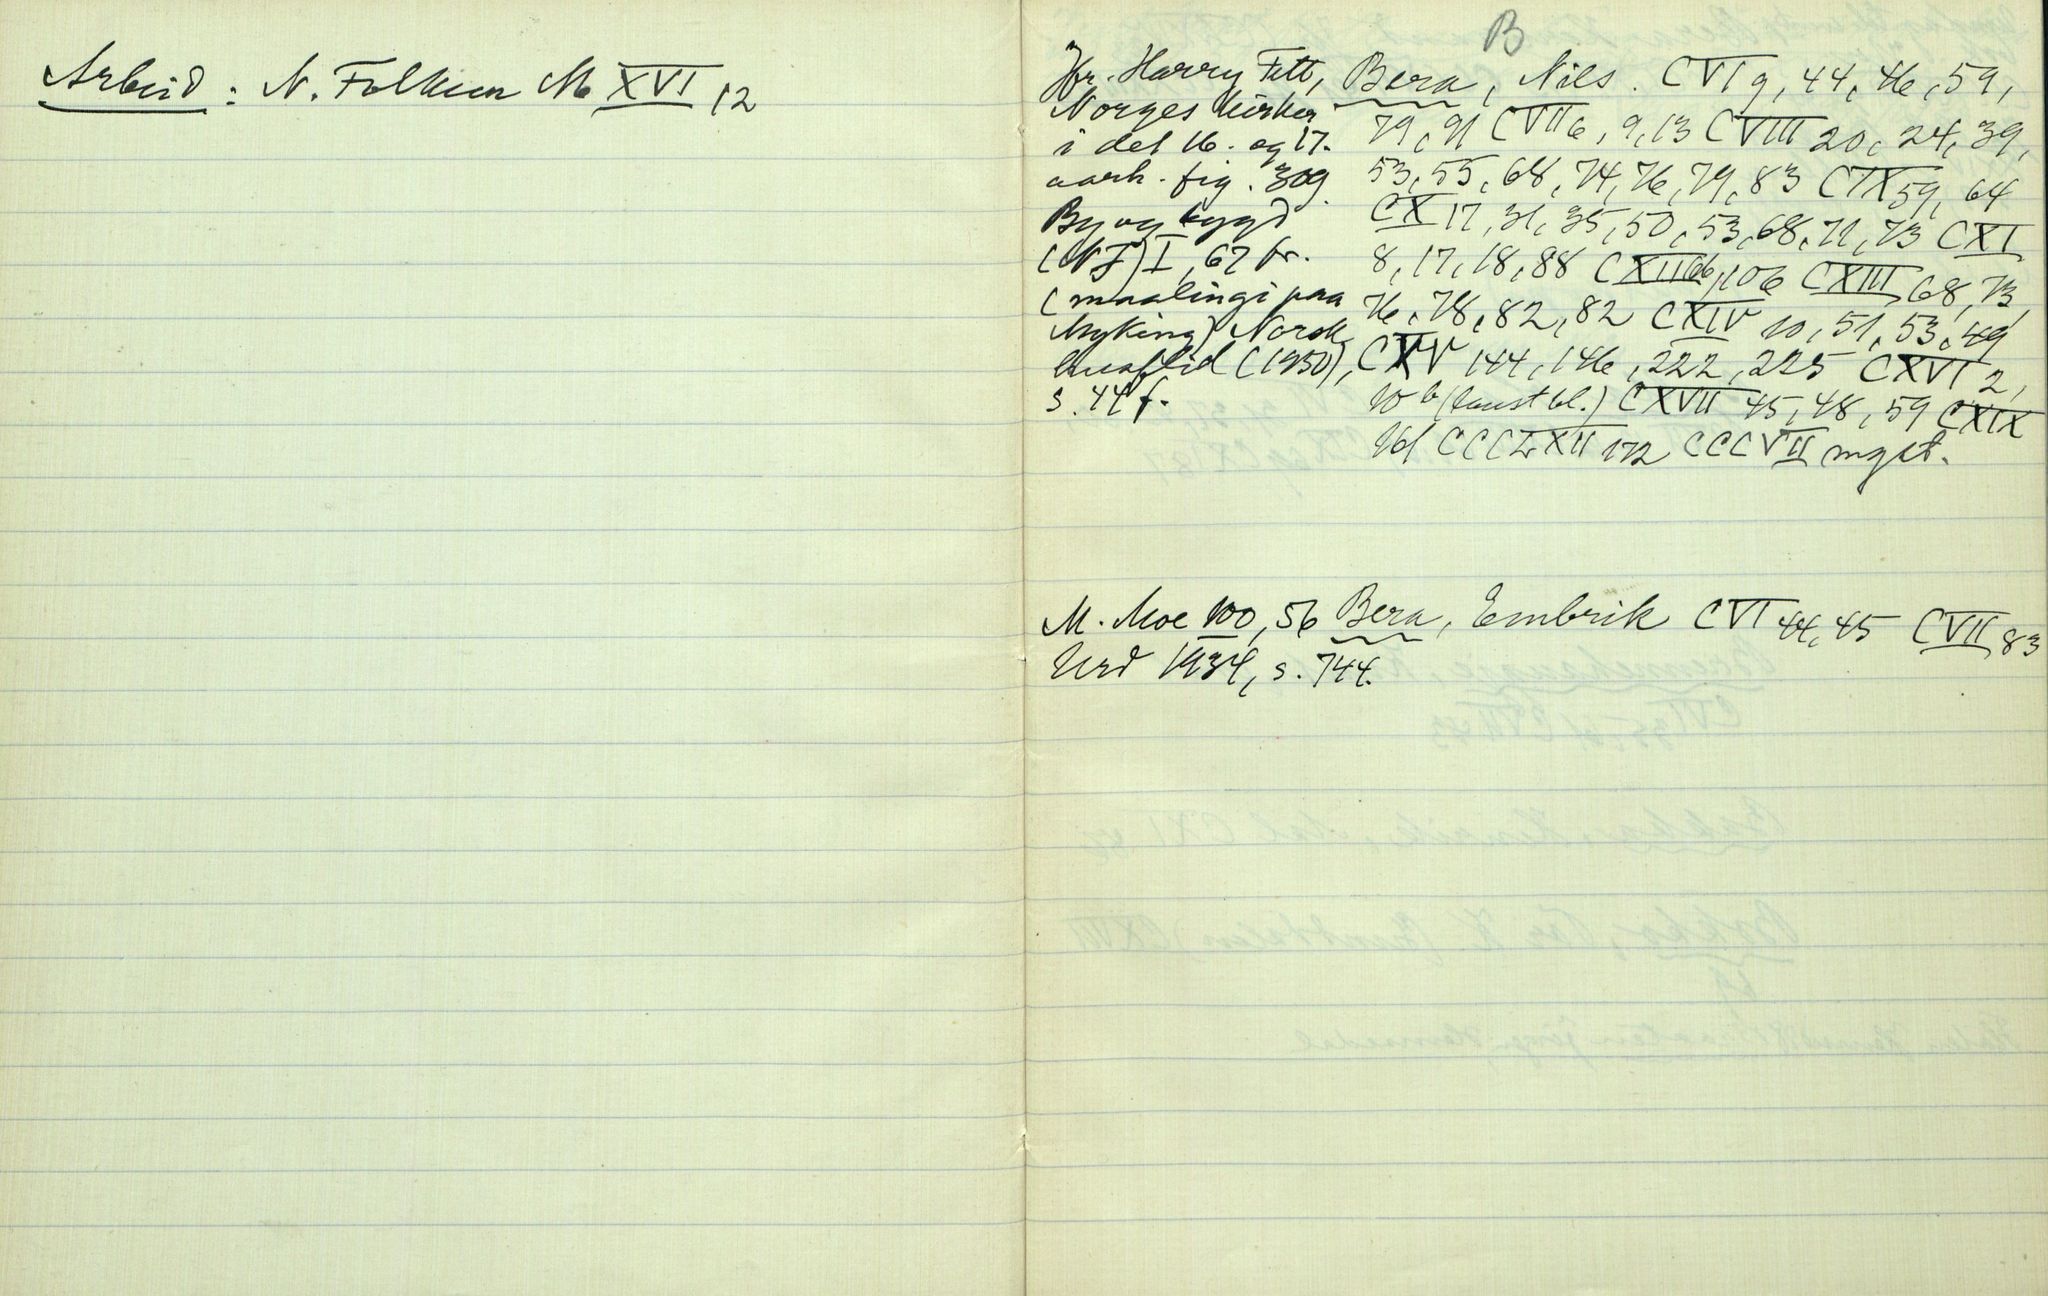 Arbeid: N. Folkem M XVI 12
B
Jfr. Harry Fett,
Norges kirker
i det 16. og 17.
aarh. fig. 309.
By og bygd
(NF) I, 67 fr.
(maalingi paa
Myking) Norsk
husflid (1950),
s. 44 f.
Bera, Nils. CVI 9, 44, 46, 59,
79, 91 CVII 6, 9, 13 CVIII 20, 24, 39,
53, 55, 68, 74, 76, 79, 83 CIX 59, 64
CX 17, 31, 35, 50, 53, 68, 71, 73 CXI
8, 17, 18, 88 CXII 66, 106 CXIII 68, 73,
76, 78, 82, 82 CXIV 10, 51, 53, 49
CXV 144, 146, 222, 225 CXVI 2,
10 b (laust bl.) CXVII 45, 48, 59 CXIX
161 CCCLXII 172 CCCVII mgst.
M. Moe 100, 56
Urd 1934, s. 744.
Bera, Embrik CVI 44, 45 CVII 83